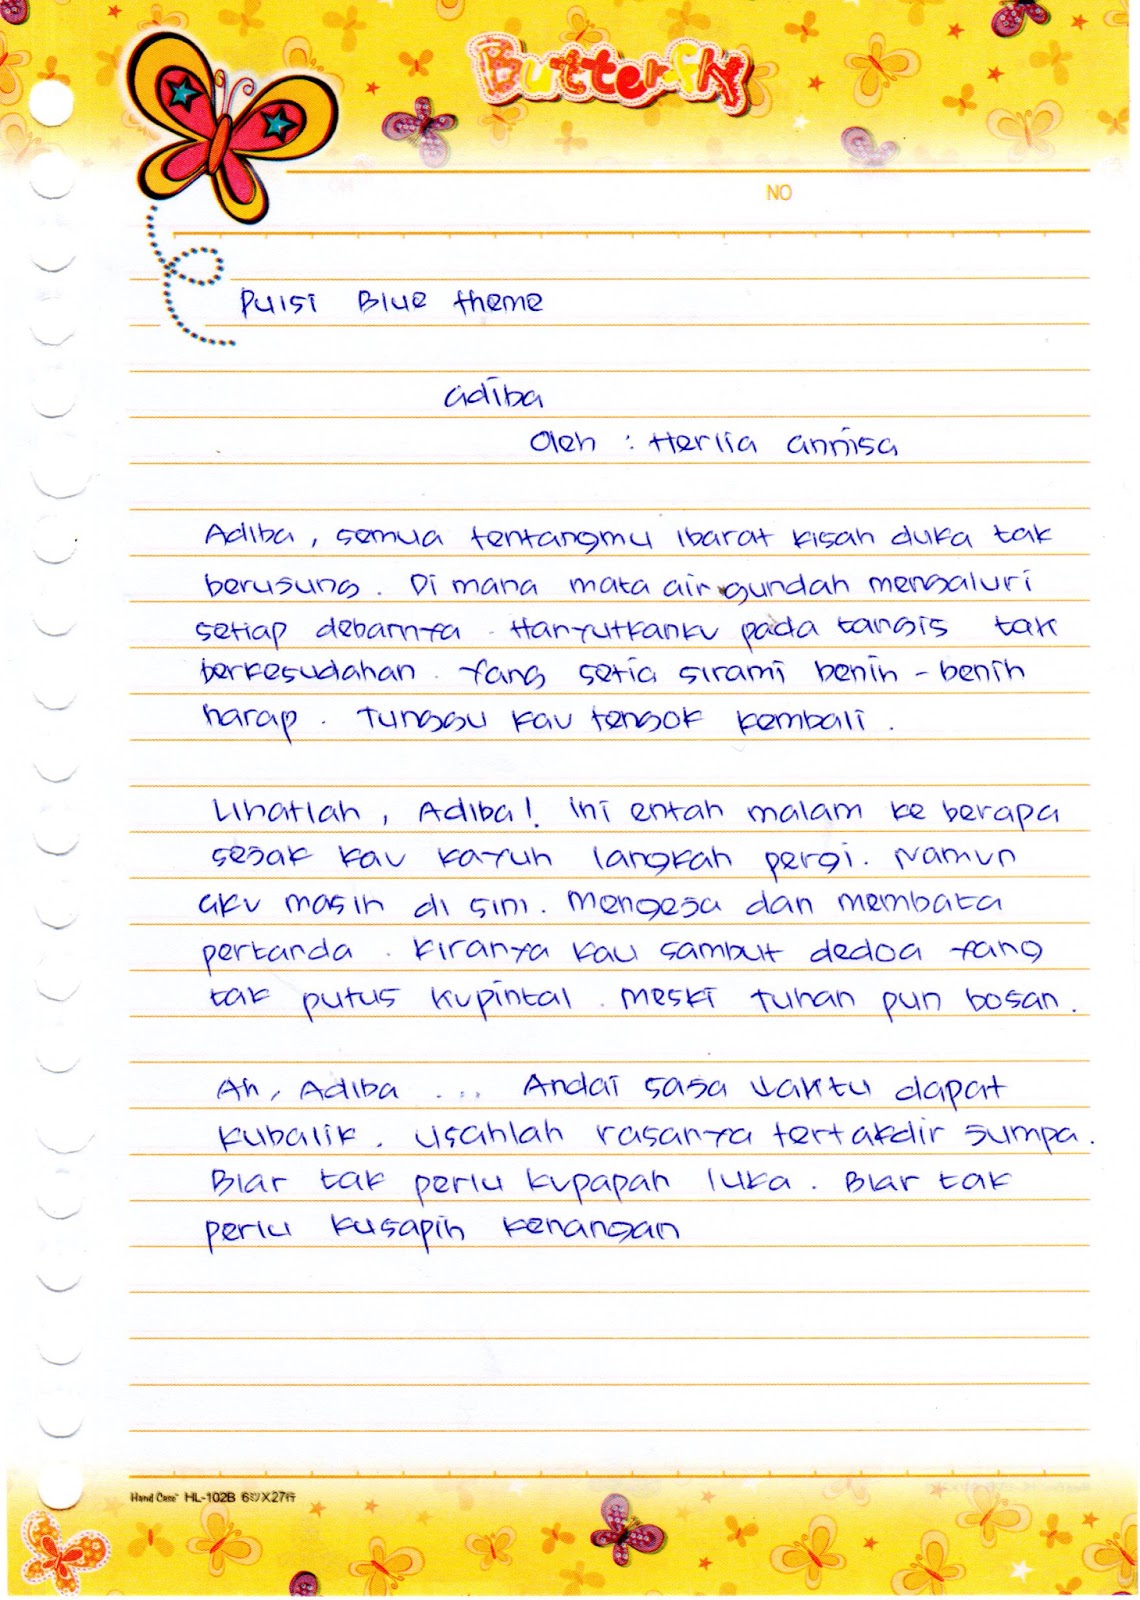 Butterfly
NO
Puisi Blue theme
adiba
Oleh : Herlia annisa
Adiba, semua tentangmu ibarat kisah duka tak
berusung. Di mana mata air gundah mengaluri
setiap debarnya. Hanyutkanku pada tangis tak
berkesudahan. Yang setia sirami benih-benih
harap. Tunggu kau tengok kembali.
Lihatlah, Adiba! ini entah malam ke berapa
sejak kau kayuh langkah pergi. Namun
aku masin di sini. Mengeja dan membaca
pertanda. Kiranya kau sambut dedoa yang
tak putus kupintal. Meski Tuhan pun bosan.
Ah, Adiba ... Andai saja waktu dapat
kubalik. Usahlah rasanya tertakdir jumpa.
Biar tak perlu kupapah luka. Biar tak
perlu kusapih kenangan
Hand Case HL-102B 6 X27行